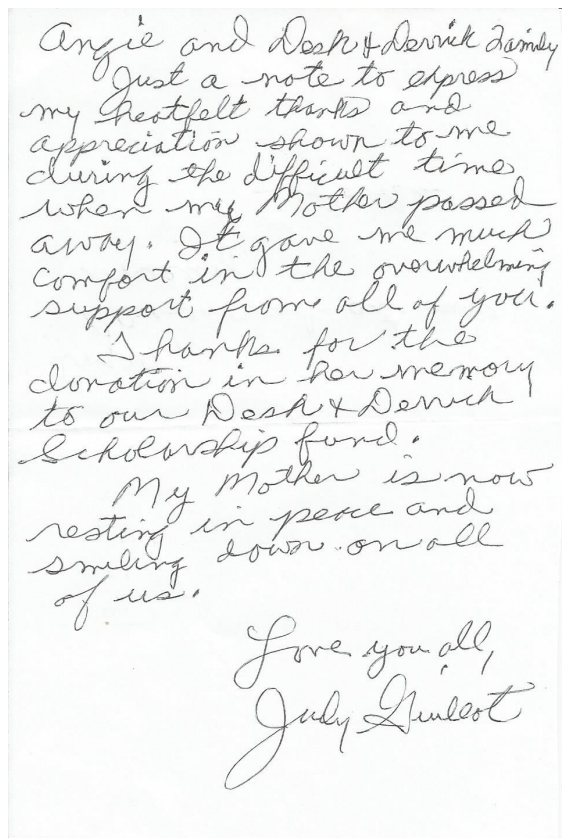 Angie and Desk & Derrick Family
Just a note to express
my heatfelt thanks and
appreciation shown to me
during the difficult time
when my Mother passed
away. It gave me much
comfort in the overwhelming
support from all of you.
Thanks for the
donation in her memory
to our Desk & Derrick
Scholarship fund.
My Mother is now
resting in peace and
smiling down on all
of us.
Love you all,
Judy